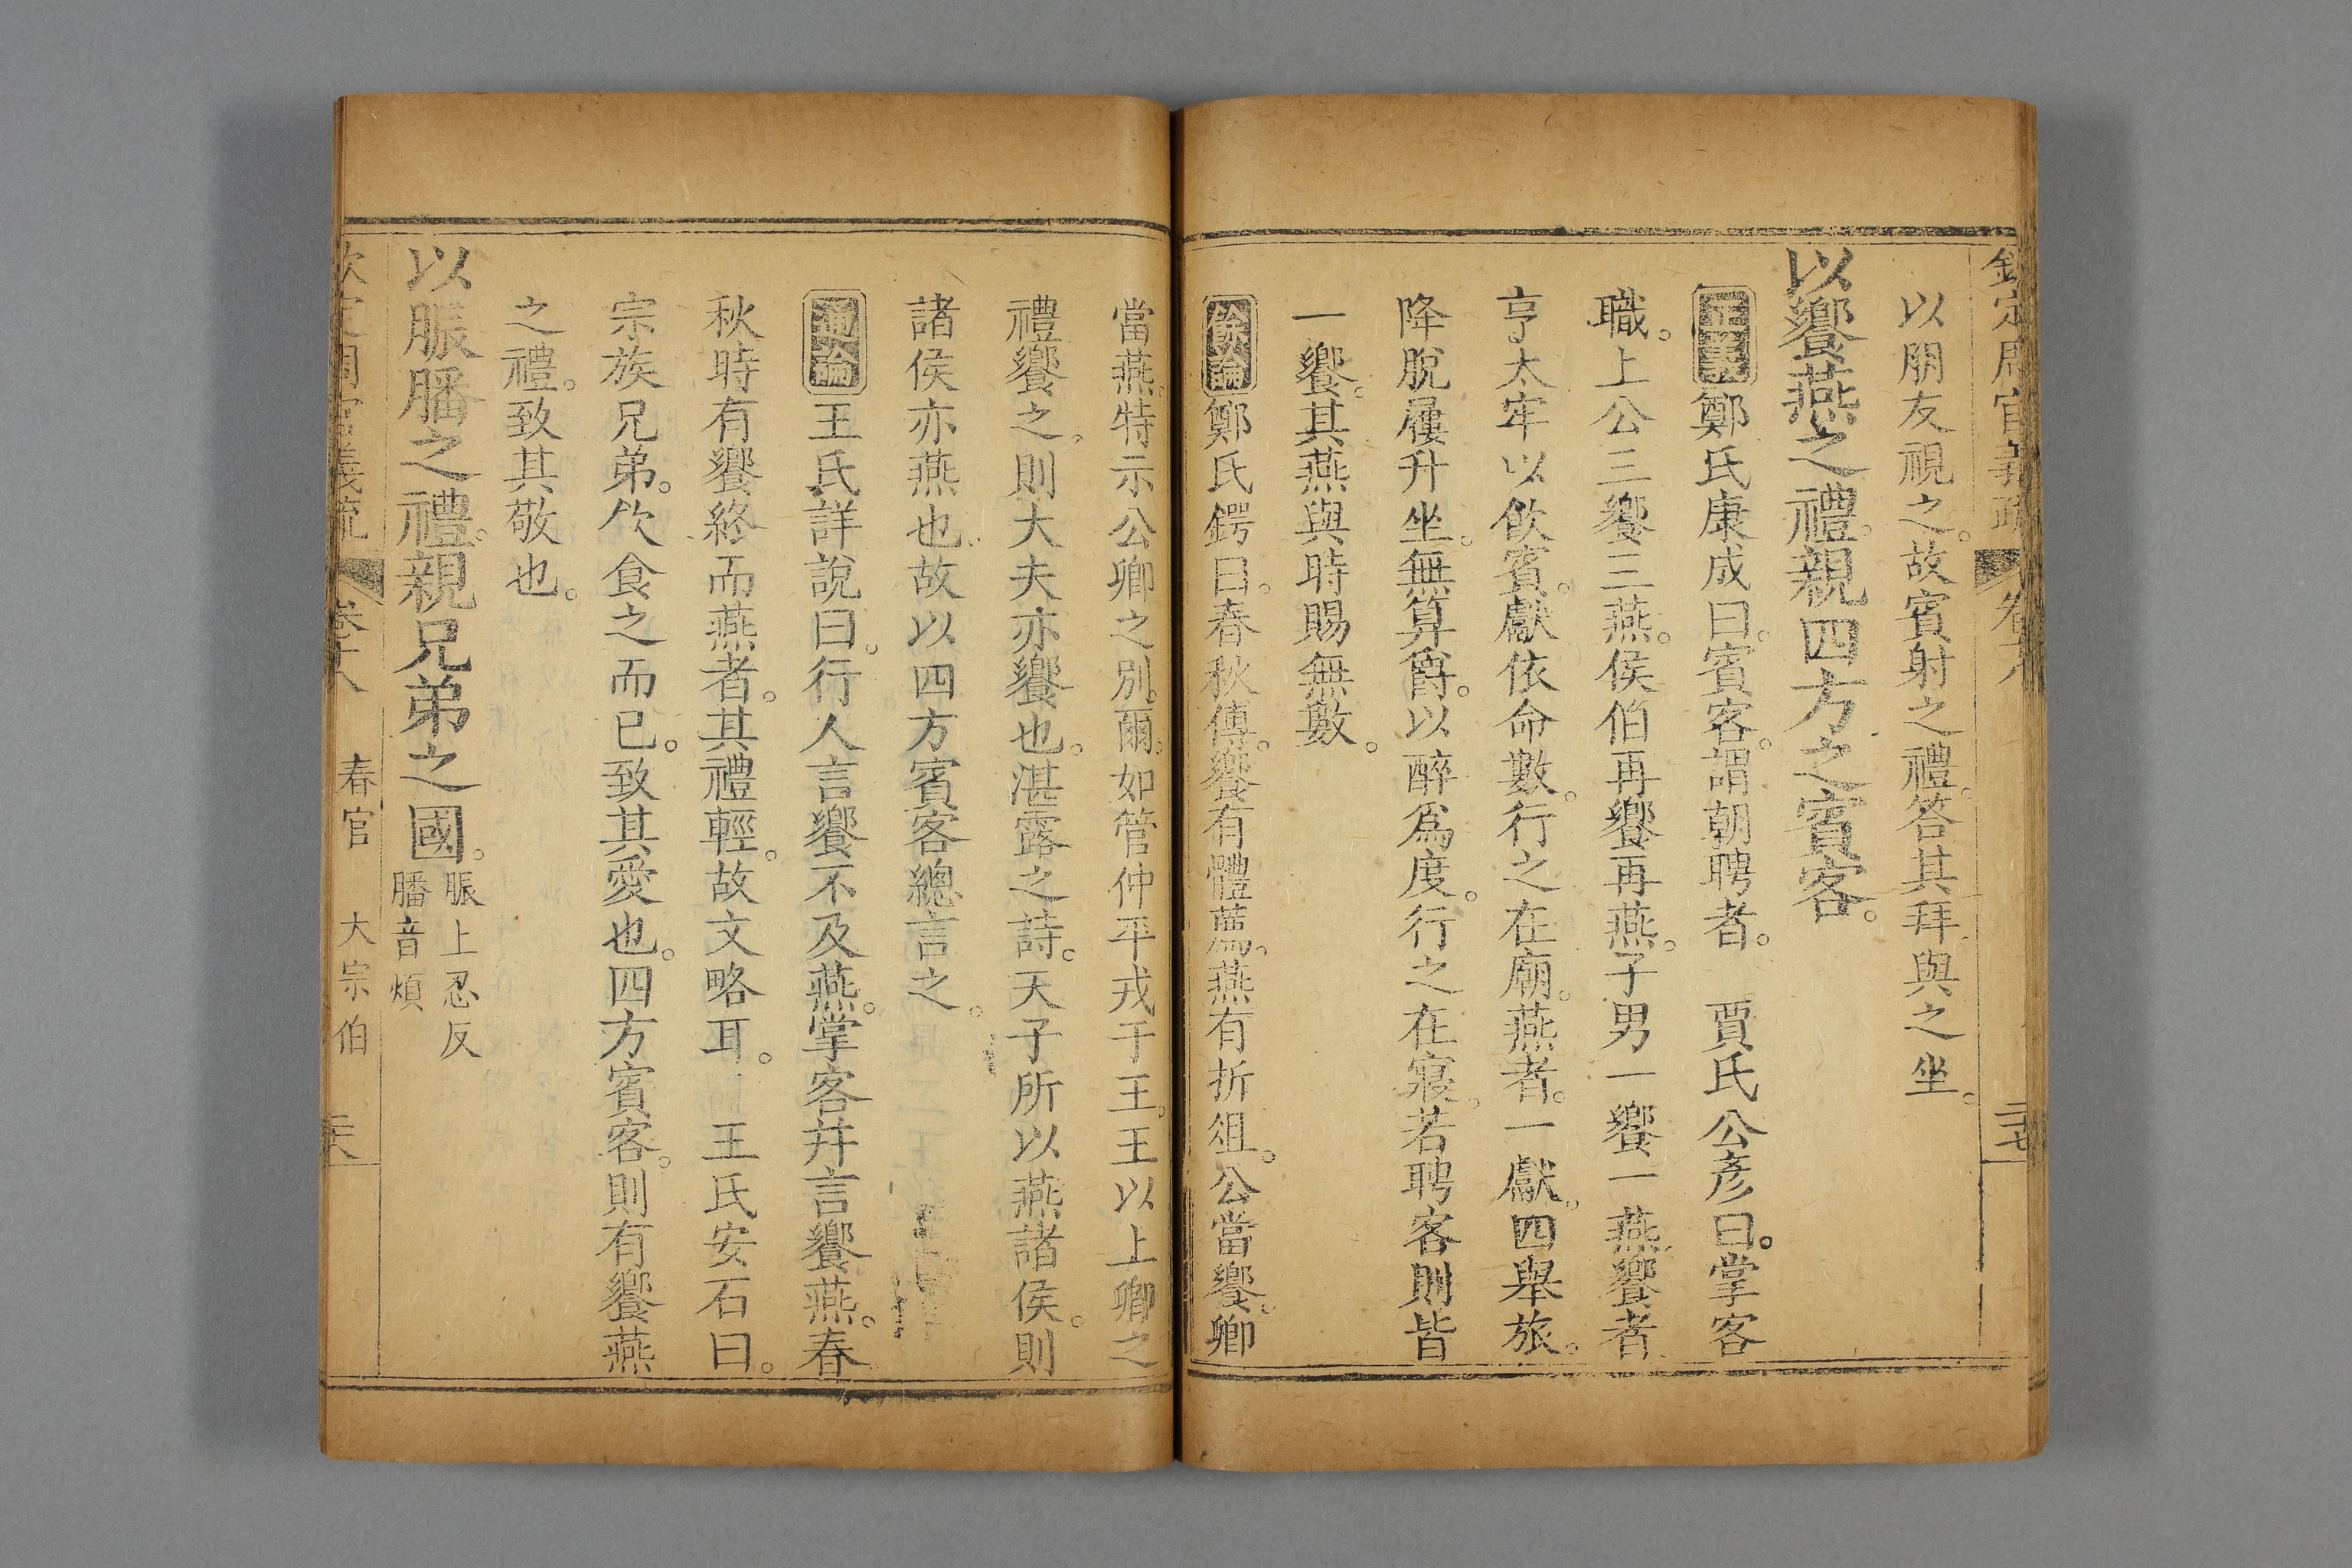 欽定周官義疏 卷十八 二十七
以朋友視之。故賓射之禮。答其拜與之坐。
以饗燕之禮。親四方之賓客。
正義 鄭氏康成曰。賓客。謂朝聘者。 賈氏公彥曰。掌客
職。上公三饗三燕。侯伯再饗再燕。子男一饗一燕。饗者
亨太牢以飲賓。獻依命數。行之在廟。燕者。一獻。四舉旅。
降脫屨升坐。無算爵。以醉爲度。行之在寢。若聘客則皆
一饗。其燕與時賜無數。
餘論 鄭氏鍔曰。春秋傳。饗有體薦。燕有折俎。公當饗。卿
當燕。特示公卿之別爾。如管仲平戎于王。王以上卿之
禮饗之。則大夫亦饗也。湛露之詩。天子所以燕諸侯。則
諸侯亦燕也。故以四方賓客總言之。
通論 王氏詳說曰。行人言饗不及燕。掌客幷言饗燕。春
秋時有饗終而燕者。其禮輕。故文略耳。 王氏安石曰。
宗族兄弟。飲食之而已。致其愛也。四方賓客。則有饗燕
之禮。致其敬也。
以脤膰之禮。親兄弟之國。脤上忍反
膰音煩
欽定周官義疏 卷十八 春官 大宗伯 二十八